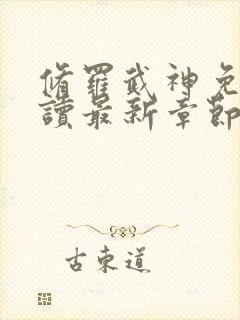 脩羅武神免
讀最新章節
古東道